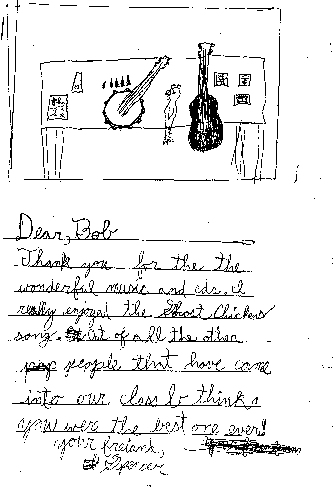 Dear, Bob
Thank you for the the
wonderful music and cds. I
really enjoyed the Ghost Chickens
song. Out of all the other
people that have come
into our class I think
you were the best one ever!
your freiend,
Spencer